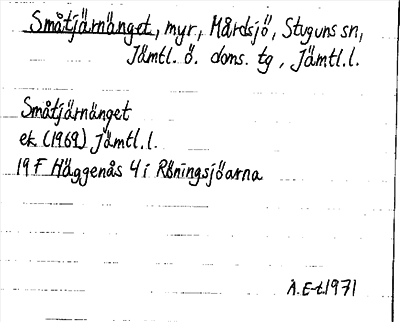 Småtjärnänget, myr, Mårdsjö, Stuguns sn,
Jämtl. ö. doms. tg, Jämtl.l.
Småtjärnänget
ek (1969) Jämtl.l.
19 F Häggenås 4 i Röningsjöarna
A.E-t 1971